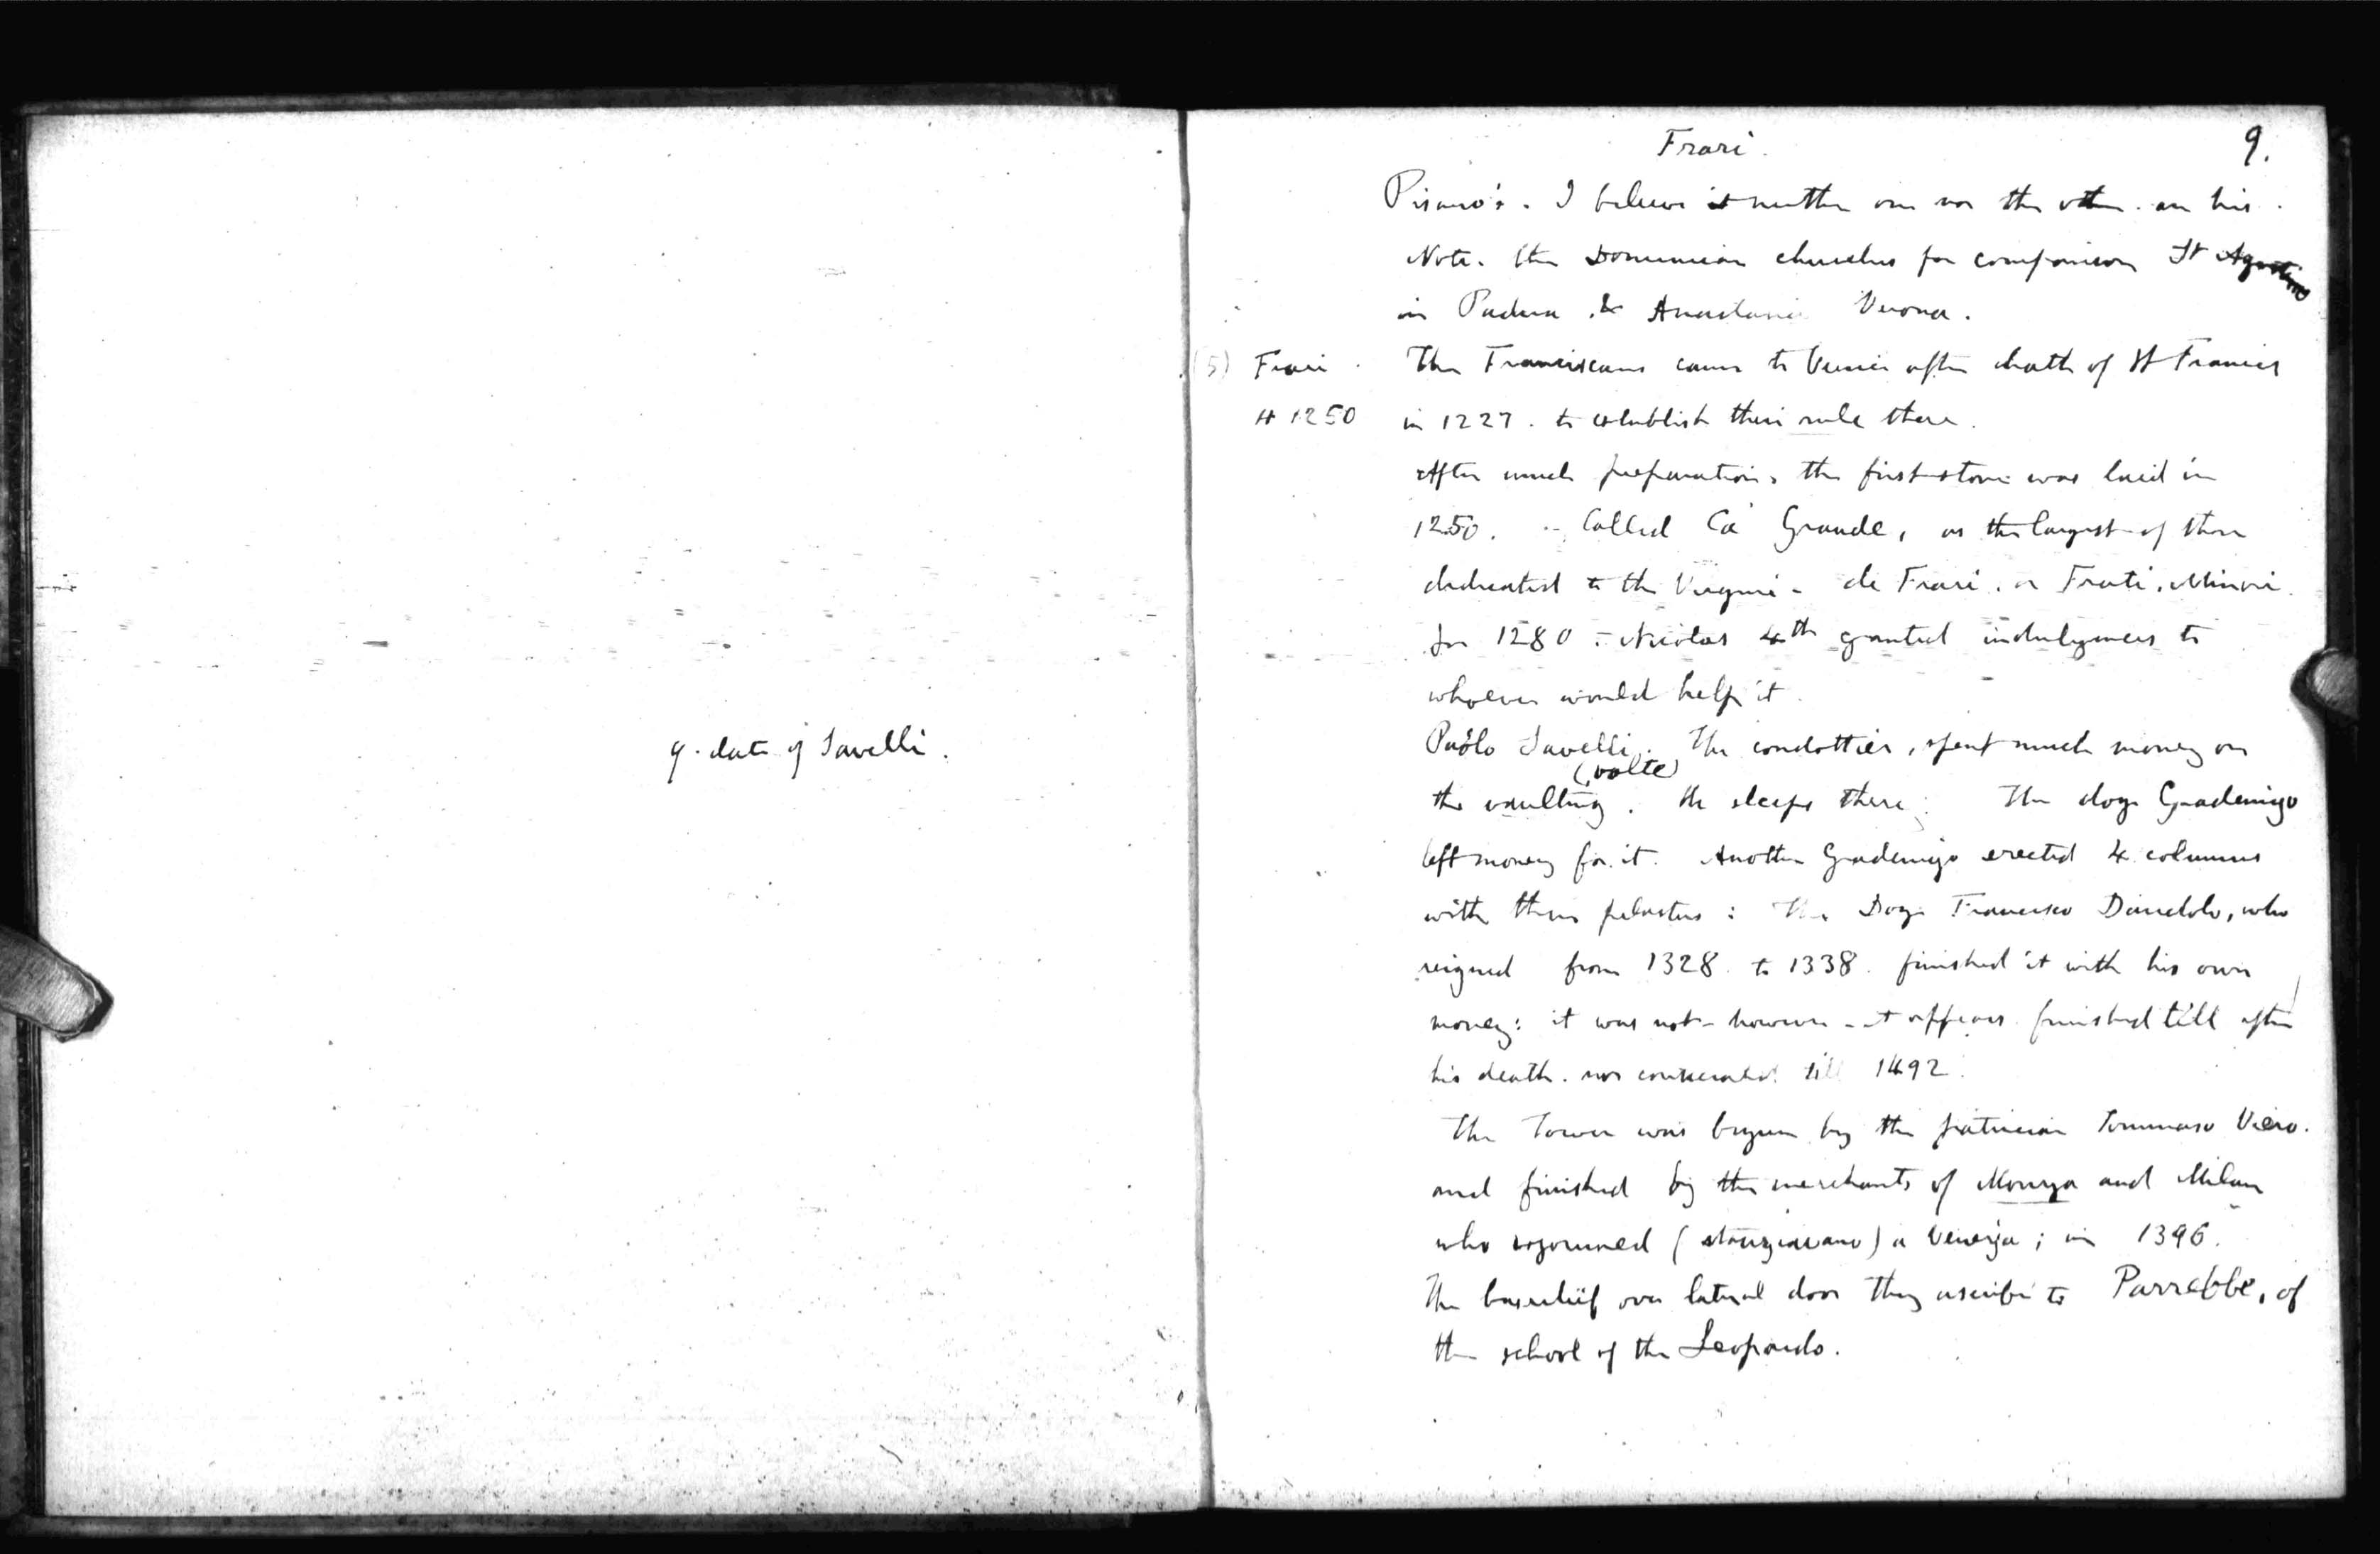 q. date of Savelli.
Frari. 9.
Pisano's. I believe neither one nor the other are his.
Note. the Dominican churches for comparison St Agostino
in Padua & Anastasia Verona.
(5) Frari. The Franciscans came to Venice after death of St Francis
# 1250 in 1227. to establish their rule there.
After much preparation, the first stone was laid in
1250. - Called Ca' Grande, as the largest of those
dedicated to the Virgin - de Frari. or Frati. Minori.
In 1280 - Nicolas 4th granted indulgences to
whoever would help it.
Paolo Savelli. The condottier, spent much money on
(volte)
the vaulting. He sleeps there; The doge Gradenigo
left money for it. Another Gradenigo erected 4 columns
with their pilasters: The Doge Francesco Dandolo, who
reigned from 1328 to 1338. finished it with his own
money: it was not - however - it appears finished till after
his death. nor consecrated till 1492.
The Tower was begun by the patrician Tommaso Viero.
and finished by the merchants of Monza and Milan
who sojourned (stanziavano) a Venezia; in 1396.
The basrelief over lateral door they ascribe to Parrabbe, of
the school of the Leopardo.